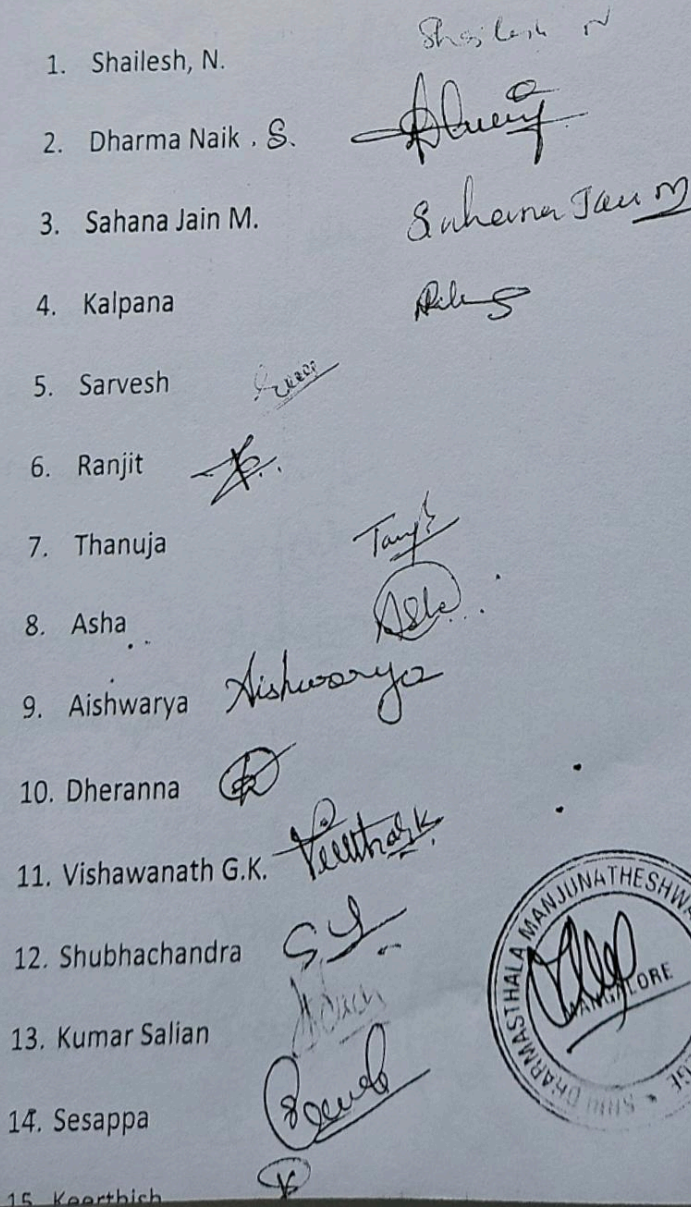 1. Shailesh, N. Shailesh N
2. Dharma Naik . S.
3. Sahana Jain M. Sahana Jain M
4. Kalpana
5. Sarvesh
6. Ranjit
7. Thanuja
8. Asha Asha
9. Aishwarya Aishwarya
10. Dheranna
11. Vishawanath G.K.
12. Shubhachandra
13. Kumar Salian
14. Sesappa
15. Keerthich
SHRI DHARMASTHALA MANJUNATHESHWA
MANGALORE